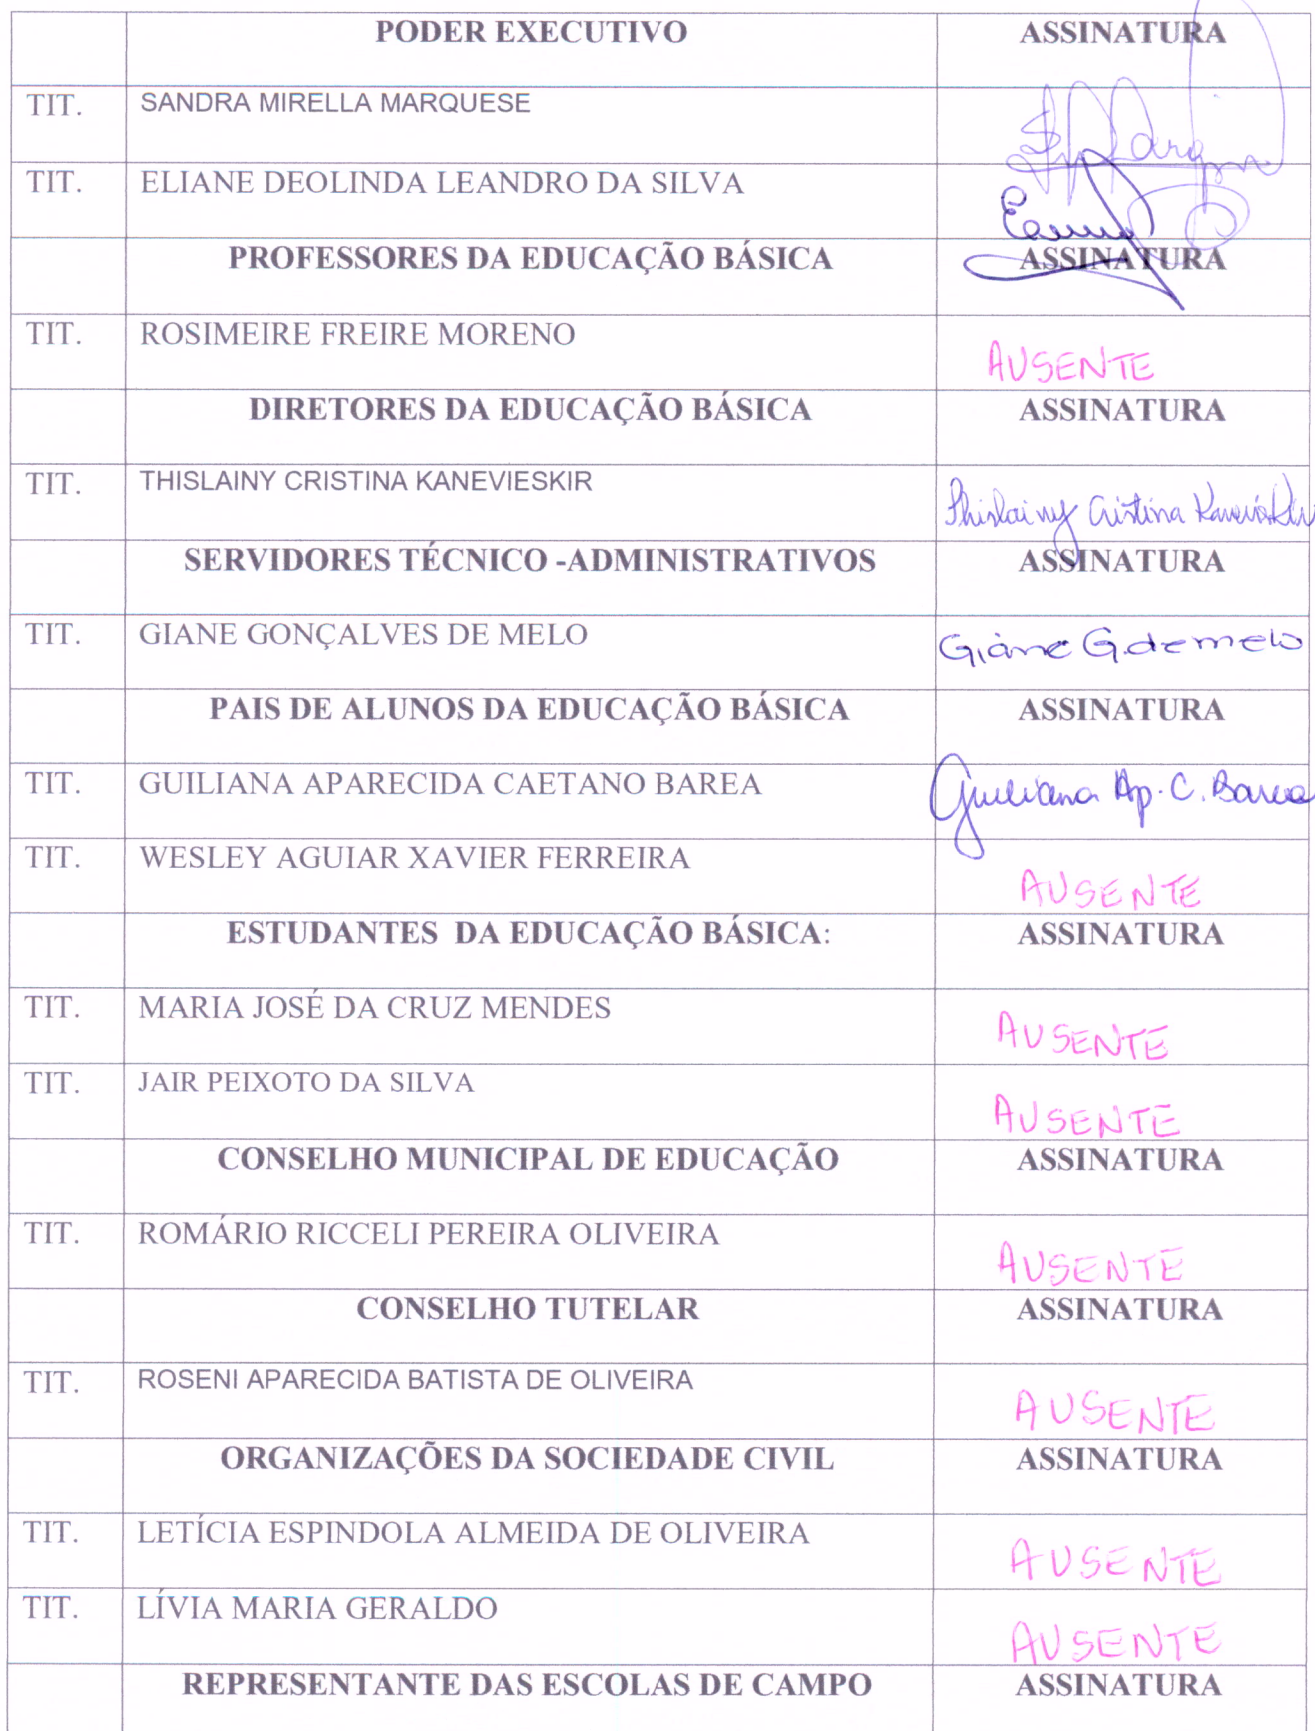 PODER EXECUTIVO ASSINATURA
TIT. SANDRA MIRELLA MARQUESE
TIT. ELIANE DEOLINDA LEANDRO DA SILVA
PROFESSORES DA EDUCAÇÃO BÁSICA ASSINATURA
TIT. ROSIMEIRE FREIRE MORENO AUSENTE
DIRETORES DA EDUCAÇÃO BÁSICA ASSINATURA
TIT. THISLAINY CRISTINA KANEVIESKIR Thislainy Cristina Kanevieskir
SERVIDORES TÉCNICO -ADMINISTRATIVOS ASSINATURA
TIT. GIANE GONÇALVES DE MELO Giane G. de melo
PAIS DE ALUNOS DA EDUCAÇÃO BÁSICA ASSINATURA
TIT. GUILIANA APARECIDA CAETANO BAREA Guiliana Ap. C. Barea
TIT. WESLEY AGUIAR XAVIER FERREIRA AUSENTE
ESTUDANTES DA EDUCAÇÃO BÁSICA: ASSINATURA
TIT. MARIA JOSÉ DA CRUZ MENDES AUSENTE
TIT. JAIR PEIXOTO DA SILVA AUSENTE
CONSELHO MUNICIPAL DE EDUCAÇÃO ASSINATURA
TIT. ROMÁRIO RICCELI PEREIRA OLIVEIRA AUSENTE
CONSELHO TUTELAR ASSINATURA
TIT. ROSENI APARECIDA BATISTA DE OLIVEIRA AUSENTE
ORGANIZAÇÕES DA SOCIEDADE CIVIL ASSINATURA
TIT. LETÍCIA ESPINDOLA ALMEIDA DE OLIVEIRA AUSENTE
TIT. LÍVIA MARIA GERALDO AUSENTE
REPRESENTANTE DAS ESCOLAS DE CAMPO ASSINATURA